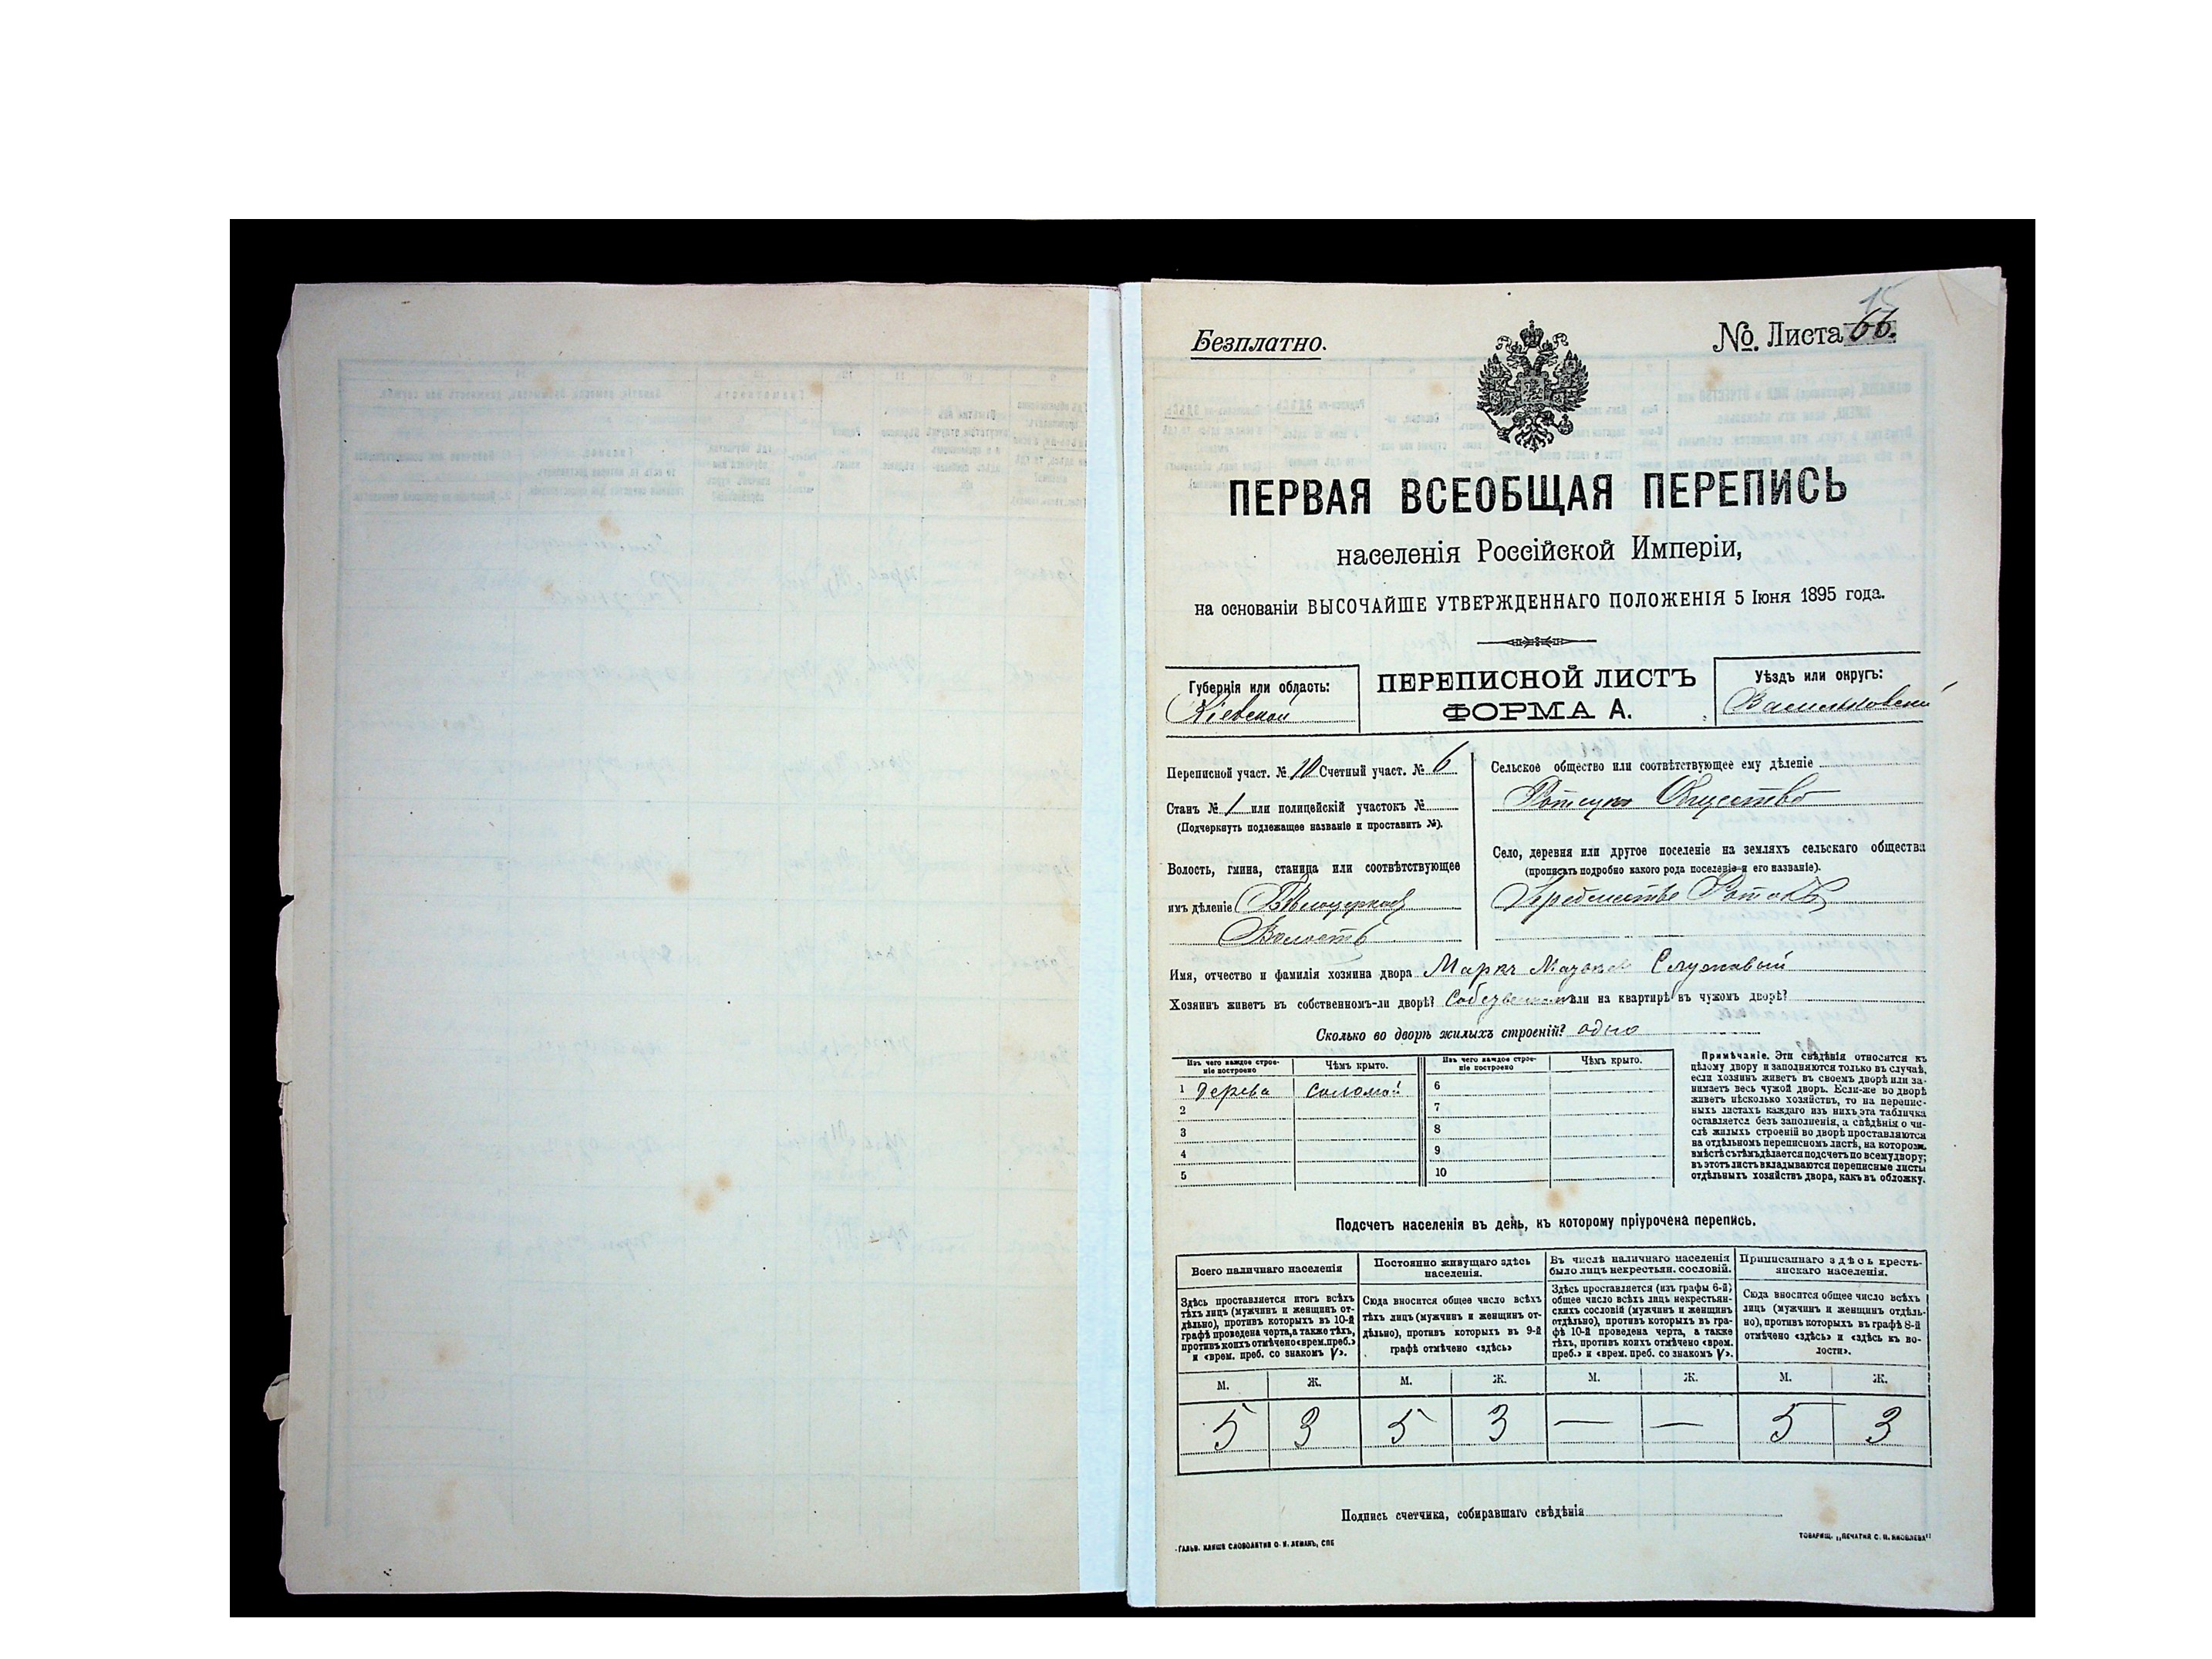 Безплатно.
15
№. Листа 66.
ПЕРВАЯ ВСЕОБЩАЯ ПЕРЕПИСЬ
населенія Россійской Имперіи,
на основаніи ВЫСОЧАЙШЕ УТВЕРЖДЕННАГО ПОЛОЖЕНІЯ 5 Іюня 1895 года.
Губернія или область:
Кіевской
ПЕРЕПИСНОЙ ЛИСТЪ
ФОРМА А.
Уѣздъ или округъ:
Переписной участ. № 10 Счетный участ. № 6
Станъ № 1 или полицейскій участокъ №
(Подчеркнуть подлежащее названіе и проставить №).
Волость, гмина, станица или соотвѣтствующее
имъ дѣленіе
Волость
Сельское общество или соотвѣтствующее ему дѣленіе
Общество
Село, деревня или другое поселеніе на земляхъ сельскаго общества
(прописать подробно какого рода поселеніе и его названіе).
Имя, отчество и фамилія хозяина двора Маркъ Служивый
Хозяинъ живетъ въ собственномъ-ли дворѣ? или на квартирѣ въ чужомъ дворѣ?
Сколько во дворѣ жилыхъ строеній? одно
Изъ чего каждое строе-
ніе построено
Чѣмъ крыто.
Изъ чего каждое строе-
ніе построено
Чѣмъ крыто.
1 дерева
2
3
4
5
6
7
8
9
10
Примѣчаніе. Эти свѣдѣнія относятся къ
цѣлому двору и заполняются только въ случаѣ,
если хозяинъ живетъ въ своемъ дворѣ или за-
нимаетъ весь чужой дворъ. Если-же во дворѣ
живетъ нѣсколько хозяйствъ, то на перепис-
ныхъ листахъ каждаго изъ нихъ эта табличка
оставляется безъ заполненія, а свѣдѣнія о чи-
слѣ жилыхъ строеній во дворѣ проставляются
на отдѣльномъ переписномъ листѣ, на которомъ
вмѣстѣ съ тѣмъ дѣлается подсчетъ по всему двору;
въ этотъ листъ вкладываются переписные листы
отдѣльныхъ хозяйствъ двора, какъ въ обложку.
Подсчетъ населенія въ день, къ которому пріурочена перепись.
Всего наличнаго населенія
Здѣсь проставляется итогъ всѣхъ
тѣхъ лицъ (мужчинъ и женщинъ от-
дѣльно), противъ которыхъ въ 10-й
графѣ проведена черта, а также тѣхъ,
противъ коихъ отмѣчено «врем. преб.»
и «врем. преб. со знакомъ V».
Постоянно живущаго здѣсь
населенія.
Сюда вносится общее число всѣхъ
тѣхъ лицъ (мужчинъ и женщинъ от-
дѣльно), противъ которыхъ въ 9-й
графѣ отмѣчено «здѣсь»
Въ числѣ наличнаго населенія
было лицъ некрестьян. сословій.
Здѣсь проставляется (изъ графы 6-й)
общее число всѣхъ лицъ некрестьян-
скихъ сословій (мужчинъ и женщинъ
отдѣльно), противъ которыхъ въ гра-
фѣ 10-й проведена черта, а также
тѣхъ, противъ коихъ отмѣчено «врем.
преб.» и «врем. преб. со знакомъ V».
Приписаннаго здѣсь кресть-
янскаго населенія.
Сюда вносится общее число всѣхъ
лицъ (мужчинъ и женщинъ отдѣль-
но), противъ которыхъ въ графѣ 8-й
отмѣчено «здѣсь» и «здѣсь къ во-
лости».
М. Ж. М. Ж. М. Ж. М. Ж.
5 3 5 3 — — 5 3
Подпись счетчика, собиравшаго свѣдѣнія
ГАЛЬВ. КЛИШЕ СЛОВОЛИТНИ О. И. ЛЕМАНЪ, СПБ
ТОВАРИЩ. „ПЕЧАТНЯ С. П. ЯКОВЛЕВА"